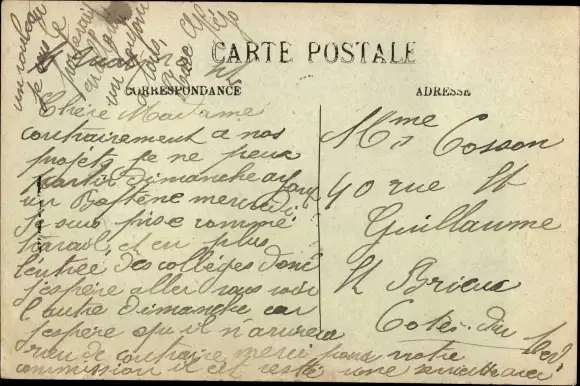 CARTE POSTALE
CORRESPONDANCE
ADRESSE
Chère Madame
contrairement a nos
projets je ne peux
partir Dimanche ayant
un Baptème mercredi
je suis prise comme
travail et en plus
l'entrée des collèges donc
j'espère aller vous voir
l'autre Dimanche car
j'espère qu'il n'arrivera
rien de contraire merci pour votre
commission il est resté une
Mme Cosson
40 rue St
Guillaume
St Brieuc
Cotes du Nord